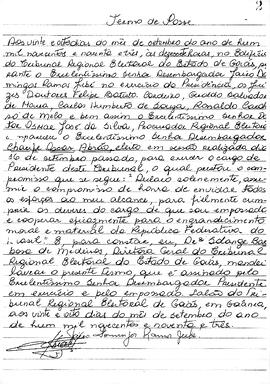 2
Termo de Posse
Aos vinte e oito dias do mês de setembro do ano de hum
mil novecentos e noventa e três, às dezoito horas, no Edifício
do Tribunal Regional Eleitoral do Estado de Goiás, pe-
rante o Excelentíssimo Senhor Desembargador Jairo Do-
mingos Ramos Jubé no exercício da Presidência, os Juí-
zes Doutores Felipe Batista Cordeiro, Geraldo Salvador
de Moura, Carlos Humberto de Sousa, Ronaldo Cardo-
so de Melo, e bem assim o Excelentíssimo Senhor Dou-
tor José da Silva, Procurador Regional Eleitoral
compareceu o Excelentíssimo Senhor Desembargador
eleito em sessão realizada dia
16 de setembro passado, para exercer o cargo de
Presidente deste Tribunal, o qual prestou o com-
promisso que se segue: "Declaro solenemente, assu-
mir o compromisso de honra de envidar todos
os esforços ao meu alcance, para fielmente cum-
prir os deveres do cargo de que sou empossado
e cooperar eficazmente para o engrandecimento
moral e material da República Federativa do
Brasil". E, para constar, eu, Solange Bar-
bosa de Medeiros, Diretora Geral do Tribunal
Regional Eleitoral do Estado de Goiás, mandei
lavrar o presente termo, que é assinado pelo
Excelentíssimo Senhor Desembargador Presidente
em exercício e pelo empossado. Salão do Tri-
bunal Regional Eleitoral de Goiás, em Goiânia,
aos vinte e oito dias do mês de setembro do ano
de hum mil novecentos e noventa e três.